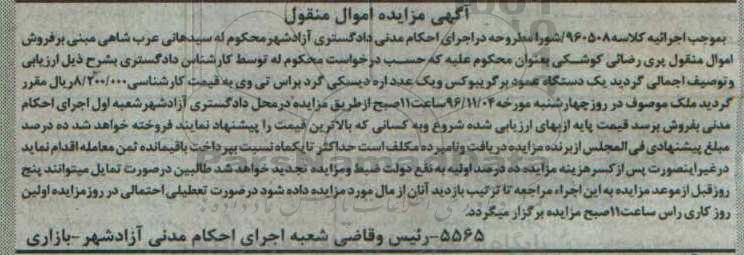 آگهی مزایده اموال منقول
بموجب اجرائیه کلاسه ۹۶۰۵۰۸/شورا مطروحه دراجرای احکام مدنی دادگستری آزادشهر محکوم له سیدهانی عرب شاهی مبنی برفروش
اموال منقول پری رضائی کوشکی بعنوان محکوم علیه که حسب درخواست محکوم له توسط کارشناس دادگستری بشرح ذیل ارزیابی
وتوصیف اجمالی گردید یک دستگاه عمود برگریبوکس ویک عدد اره دیسکی گرد براس تی وی به قیمت کارشناسی ۸/۲۰۰/۰۰۰ریال مقرر
گردید ملک موصوف در روزچهارشنبه مورخه ۹۶/۱۱/۰۴ساعت۱۱صبح ازطریق مزایده درمحل دادگستری آزادشهرشعبه اول اجرای احکام
مدنی بفروش برسد قیمت پایه ازبهای ارزیابی شده شروع وبه کسانی که بالاترین قیمت را پیشنهاد نمایند فروخته خواهد شد ده درصد
مبلغ پیشنهادی فی المجلس ازبرنده مزایده دریافت ونامبرده مکلف است حداکثر تایکماه نسبت بپرداخت باقیمانده ثمن معامله اقدام نماید
درغیراینصورت پس ازکسرهزینه مزایده ده درصداولیه به نفع دولت ضبط ومزایده تجدید خواهدشد طالبین درصورت تمایل میتوانند پنج
روزقبل ازموعد مزایده به این اجراء مراجعه تا ترتیب بازدید آنان از مال مورد مزایده داده شود درصورت تعطیلی احتمالی در روزمزایده اولین
روز کاری راس ساعت۱۱صبح مزایده برگزار میگردد.
۵۵۶۵-رئیس وقاضی شعبه اجرای احکام مدنی آزادشهر-بازاری
ParsNamadData